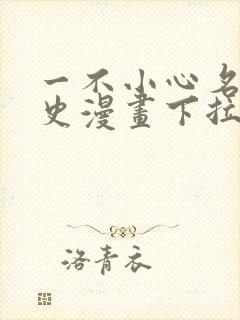 一不小心名
史漫畫下拉
洛青衣